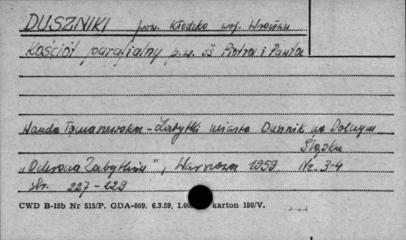 DUSZNIKI pow. Kłodzko woj. Wrocław
Kościół parafialny p.w. św Piotra i Pawła
Wanda Tomaszewska - Zabytki miasta Dusznik na Dolnym
Śląsku
„Ochrona Zabytków", Warszawa 1959, Nr. 3-4
str. 227-229
CWD B-15b Nr 515/P. GDA-809. 6.3.59, karton 180/V.